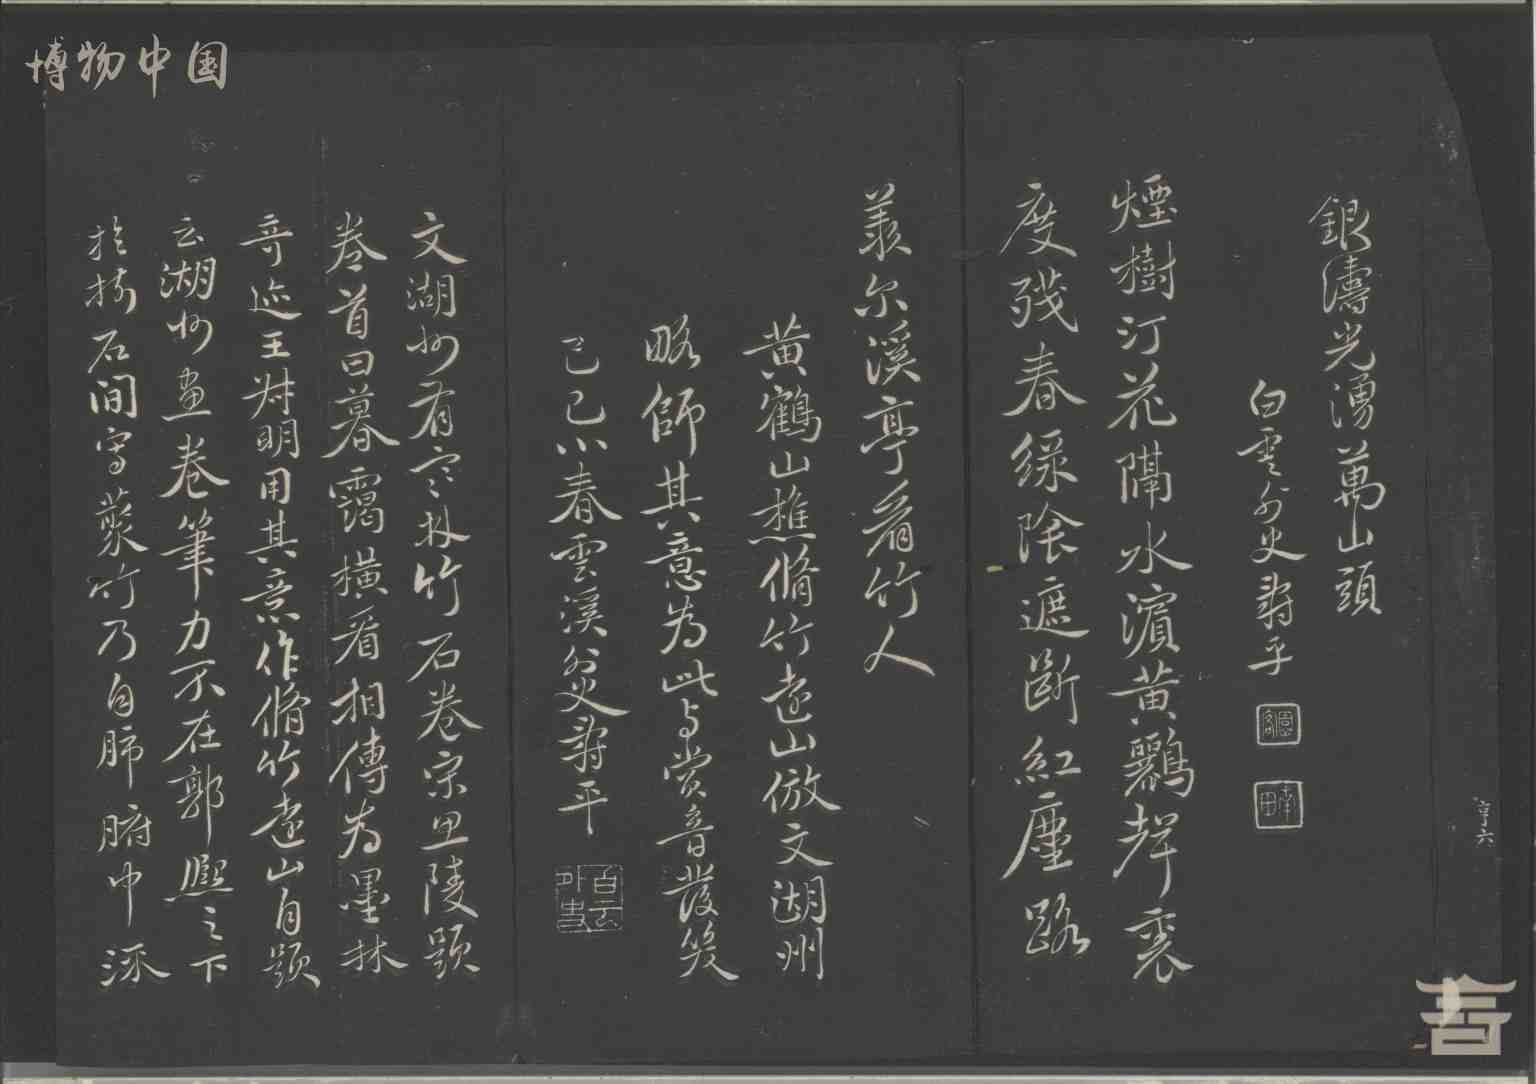 博物中国
銀濤光湧萬山頭
白雲外史壽平
園客
南田
煙樹汀花隔水濱黄鸝聲裏
度殘春緑陰遮斷紅塵路
羨尔溪亭看竹人
黄鶴山樵脩竹遠山倣文湖州
略師其意為此与赏音發笑
己巳小春雲溪外史壽平
白云外史
文湖州有寒林竹石卷宋思陵題
卷首曰暮靄橫看相傳為墨林
奇迹王叔明用其意作脩竹遠山自題
云湖州画卷筆力不在郭熙之下
於樹石間寫叢竹乃自肺腑中流
亨六